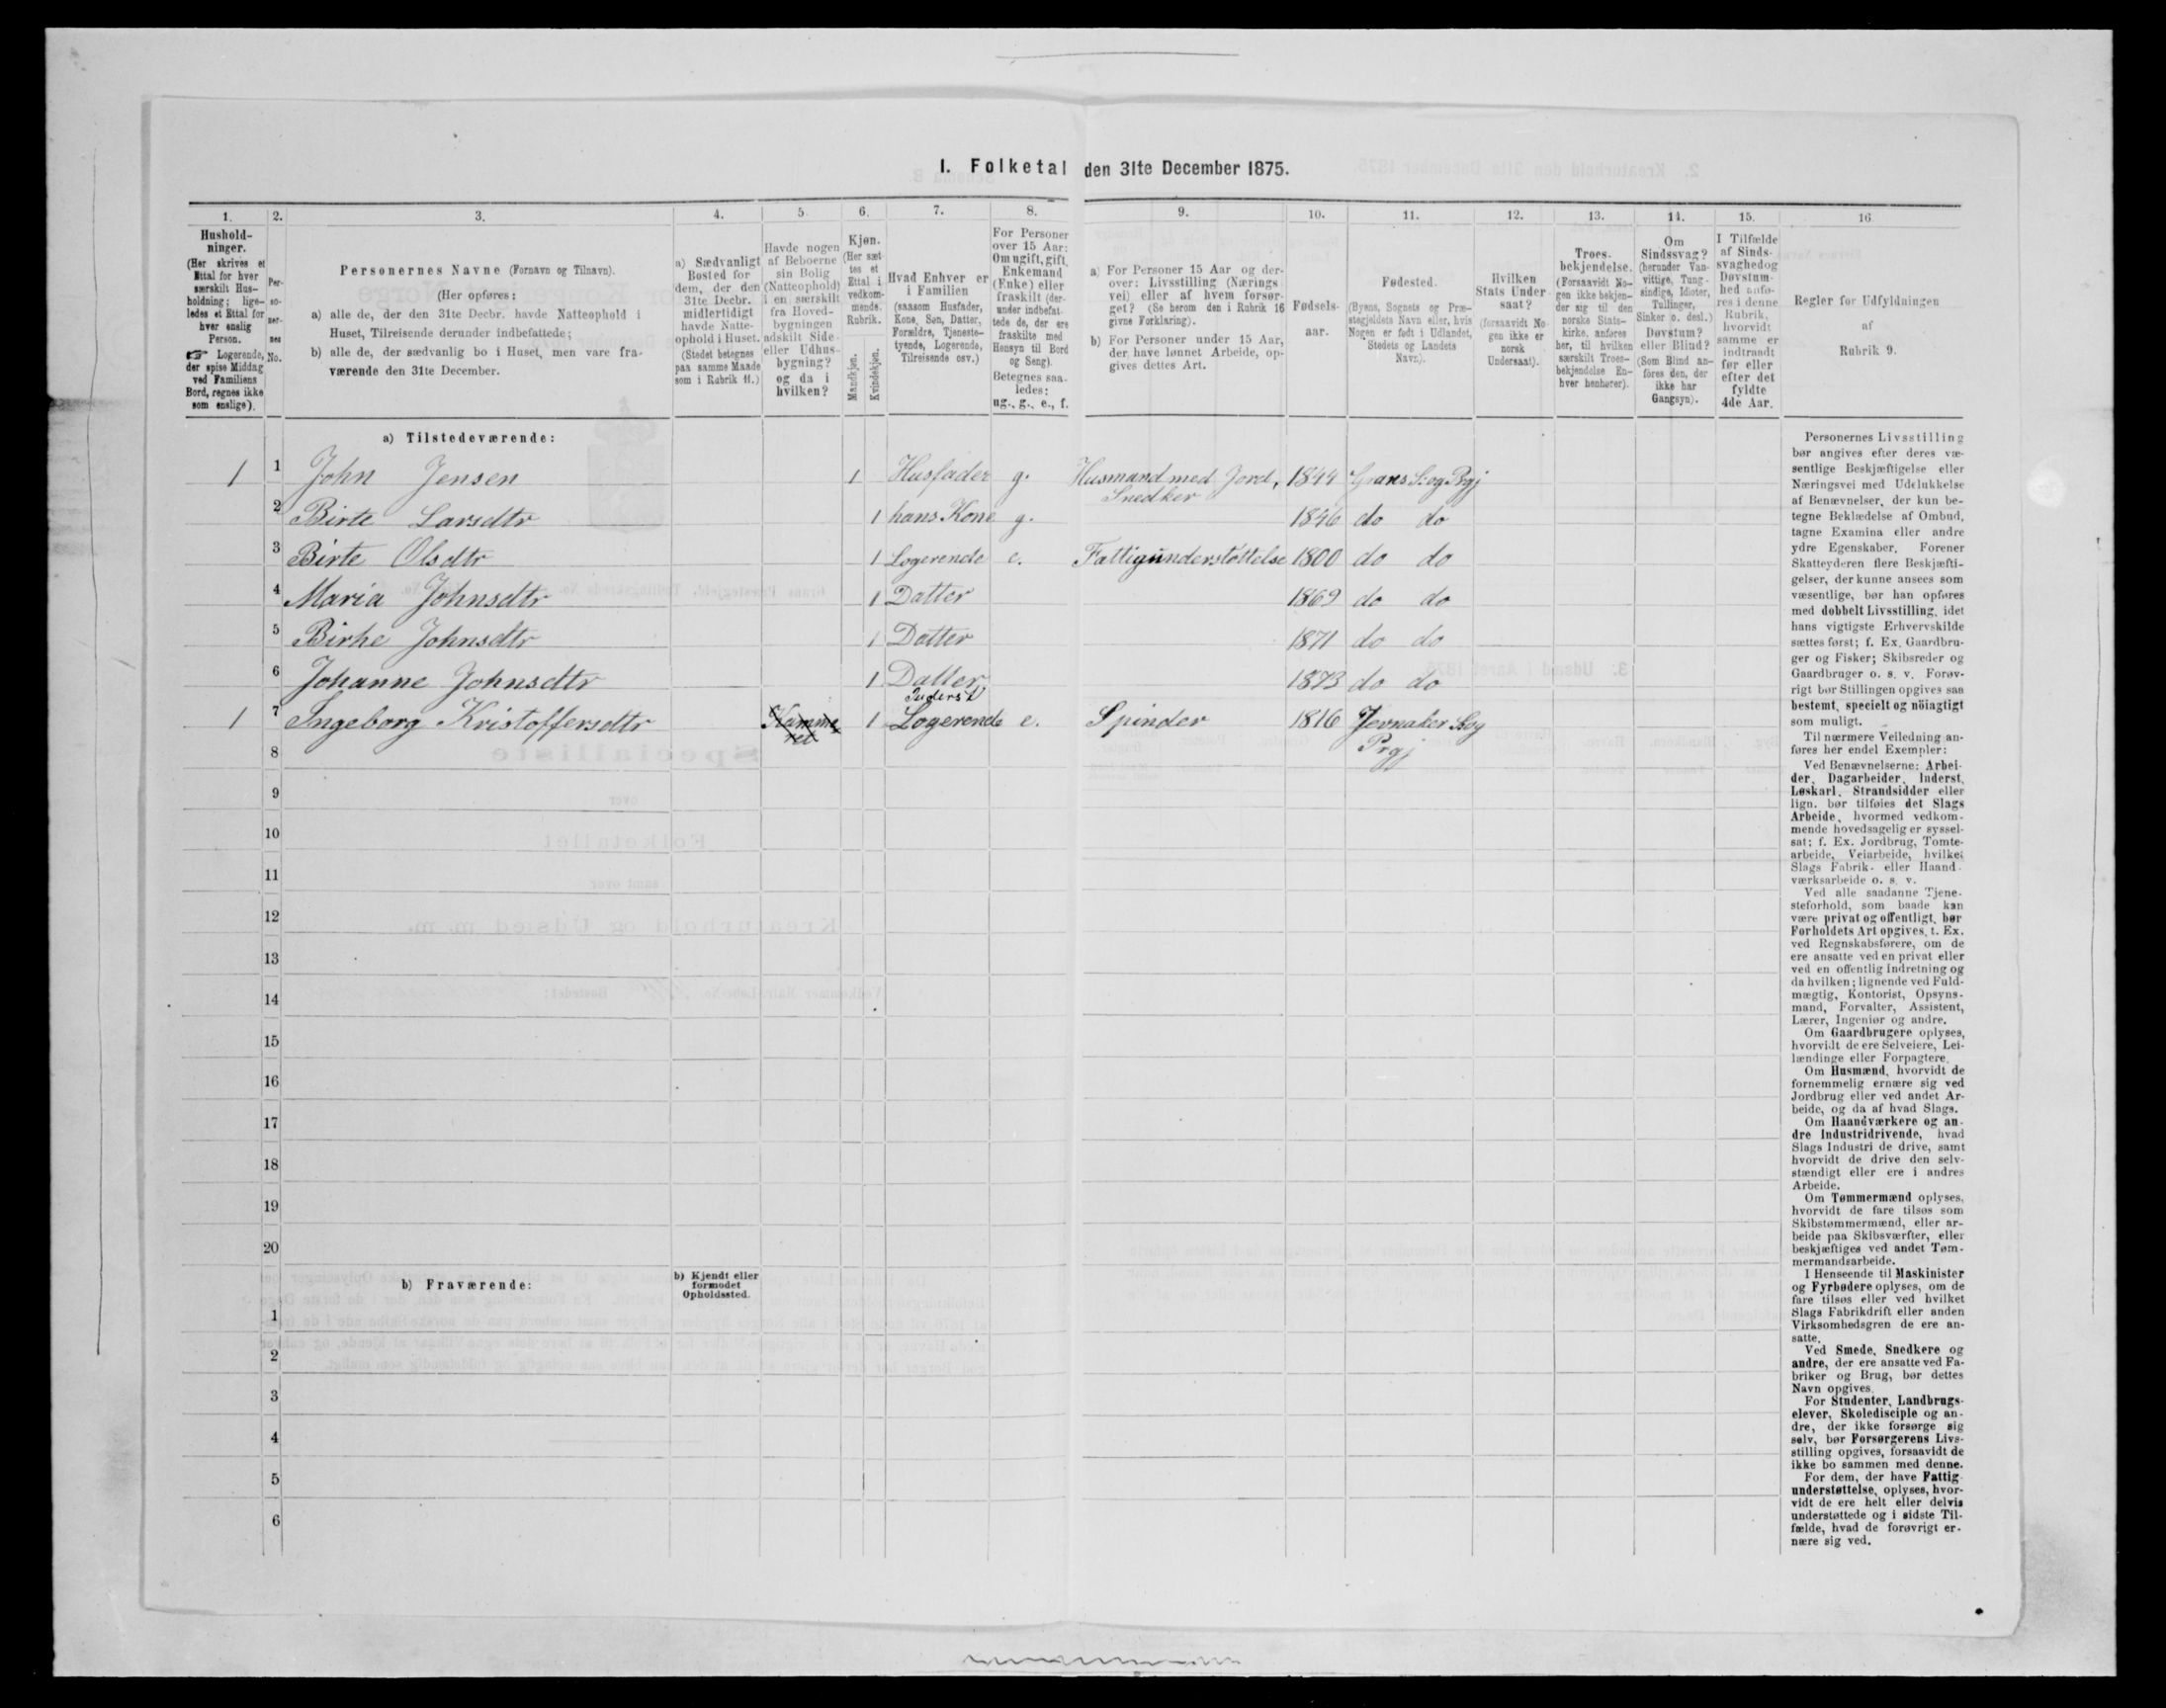 I. Folketal den 31te December 1875.
1. 2. 3. 4. 5. 6. 7. 8. 9. 10. 11. 12. 13. 14. 15. 16
Hushold-
ninger.
(Her skrives et
Ettal for hver
særskilt Hus-
holdning; lige-
ledes et Ettal for
hver enslig
Person.
☞ Logerende,
der spise Middag
ved Familiens
Bord, regnes ikke
som enslige).
Per-
so-
ner-
nes
No.
Personernes Navne (Fornavn og Tilnavn).
(Her opføres:
a) alle de, der den 31te Decbr. havde Natteophold i
Huset, Tilreisende derunder indbefattede;
b) alle de, der sædvanlig bo i Huset, men vare fra-
værende den 31te December.
a) Sædvanligt
Bosted for
dem, der den
31te Decbr.
midlertidigt
havde Natte-
ophold i Huset.
(Stedet betegnes
paa samme Maade
som i Rubrik 11.)
Havde nogen
af Beboerne
sin Bolig
(Natteophold)
i en særskilt
fra Hoved-
bygningen
adskilt Side-
eller Udhus-
bygning?
og da i
hvilken?
Kjøn.
(Her sæt-
tes et
Ettal i
vedkom-
mende
Rubrik.
Mandkjøn.
Kvindekjøn.
Hvad Enhver er
i Familien
(saasom Husfader,
Kone, Søn, Datter,
Forældre, Tjeneste-
tyende, Logerende,
Tilreisende osv.)
For Personer
over 15 Aar:
Om ugift, gift,
Enkemand
(Enke) eller
fraskilt (der-
under indbefat-
tede de, der ere
fraskilte med
Hensyn til Bord
og Seng).
Betegnes saa-
ledes:
ug., g., e., f.
a) For Personer 15 Aar og der-
over: Livsstilling (Nærings-
vei) eller af hvem forsør-
get? (Se herom den i Rubrik 16
givne Forklaring).
b) For Personer under 15 Aar,
der have lønnet Arbeide, op-
gives dettes Art.
Fødsels-
aar.
Fødested.
(Byens, Sognets og Præ-
stegjeldets Navn eller, hvis
Nogen er født i Udlandet,
Stedets og Landets
Navn).
Hvilken
Stats Under
saat?
(forsaavidt No-
gen ikke er
norsk
Undersaat).
Troes-
bekjendelse.
(Forsaavidt No-
gen ikke bekjen-
der sig til den
norske Stats-
kirke, anføres
her, til hvilken
særskilt Troes-
bekjendelse En-
hver henhører).
Om
Sindssvag?
(herunder Van-
vittige, Tung-
sindige, Idioter,
Tullinger,
Sinker o. desl.)
Døvstum?
eller Blind?
(Som Blind an-
føres den, der
ikke har
Gangsyn).
I Tilfælde
af Sinds-
svaghed og
Døvstum-
hed anfø-
res i denne
Rubrik,
hvorvidt
samme er
indtraadt
før eller
efter det
fyldte
4de Aar.
Regler for Udfyldningen
af
Rubrik 9.
a) Tilstedeværende:
1 1 John Jensen 1 Husfader g. Husmand med Jord, Snedker 1844 Grans S. og Prgj
2 Birte Larsdtr 1 hans Kone g. 1846 do do
3 Birte Olsdtr 1 Logerende e. Fattigunderstøttelse 1800 do do
4 Maria Johnsdtr 1 Datter 1869 do do
5 Birhe Johnsdtr 1 Datter 1871 do do
6 Johanne Johnsdtr 1 Datter 1873 do do
1 7 Ingeborg Kristoffersdtr Kammeret 1 Inderst Logerende e. Spinder 1816 Jevnaker S og Prgj
8
9
10
11
12
13
14
15
16
17
18
19
20
b) Fraværende:
b) Kjendt eller
formodet
Opholdssted.
1
2
3
4
5
6
Personernes Livsstilling
bør angives efter deres væ-
sentlige Beskjæftigelse eller
Næringsvei med Udelukkelse
af Benævnelser, der kun be-
tegne Beklædelse af Ombud,
tagne Examina eller andre
ydre Egenskaber. Forener
Skatteyderen flere Beskjæfti-
gelser, der kunne ansees som
væsentlige, bør han opføres
med dobbelt Livsstilling, idet
hans vigtigste Erhvervskilde
sættes først; f. Ex. Gaardbru-
ger og Fisker; Skibsreder og
Gaardbruger o. s. v. Forøv-
rigt bør Stillingen opgives saa
bestemt, specielt og nöiagtigt
som muligt.
Til nærmere Veiledning an-
føres her endel Exempler:
Ved Benævnelserne: Arbei-
der, Dagarbeider, Inderst,
Løskarl, Strandsidder eller
lign. bør tilføies det Slags
Arbeide, hvormed vedkom-
mende hovedsagelig er syssel-
sat; f. Ex. Jordbrug, Tomte-
arbeide, Veiarbeide, hvilket
Slags Fabrik- eller Haand-
værksarbeide o. s. v.
Ved alle saadanne Tjene-
steforhold, som baade kan
være privat og offentligt, bør
Forholdets Art opgives, t. Ex.
ved Regnskabsførere, om de
ere ansatte ved en privat eller
ved en offentlig Indretning og
da hvilken; lignende ved Fuld-
mægtig, Kontorist, Opsyns-
mand, Forvalter, Assistent,
Lærer, Ingeniør og andre.
Om Gaardbrugere oplyses,
hvorvidt de ere Selveiere, Lei-
lændinge eller Forpagtere.
Om Husmænd, hvorvidt de
fornemmelig ernære sig ved
Jordbrug eller ved andet Ar-
beide, og da af hvad Slags.
Om Haandværkere og an-
dre Industridrivende, hvad
Slags Industri de drive, samt
hvorvidt de drive den selv-
stændigt eller ere i andres
Arbeide.
Om Tømmermænd oplyses,
hvorvidt de fare tilsøs som
Skibstømmermænd, eller ar-
beide paa Skibsværfter, eller
beskjæftiges ved andet Tøm-
mermandsarbeide.
I Henseende til Maskinister
og Fyrbødere oplyses, om de
fare tilsøs eller ved hvilket
Slags Fabrikdrift eller anden
Virksomhedsgren de ere an-
satte.
Ved Smede, Snedkere og
andre, der ere ansatte ved Fa-
briker og Brug, bør dettes
Navn opgives.
For Studenter, Landbrugs-
elever, Skoledisciple og an-
dre, der ikke forsørge sig
selv, bør Forsørgerens Livs-
stilling opgives, forsaavidt de
ikke bo sammen med denne.
For dem, der have Fattig-
understøttelse, oplyses, hvor-
vidt de ere helt eller delvis
understøttede og i sidste Til-
fælde, hvad de forøvrigt er-
nære sig ved.